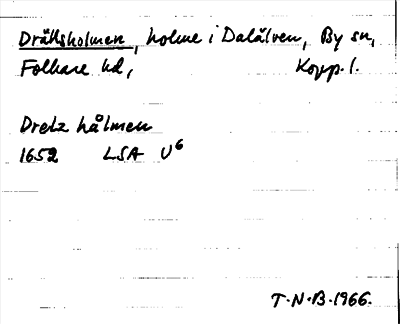 Drällsholmen, holme i Dalälven, By sn,
Folkare hd, Kopp. l.
Dretz hålmen
1652 LSA U6
T.N.B. 1966.